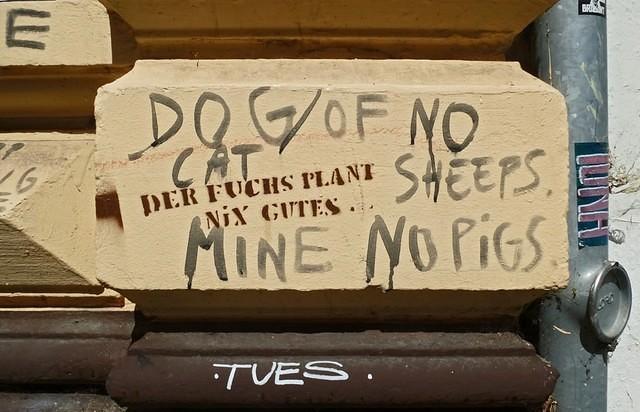 E
DOG/OF NO
CAT SHEEPS.
DER FUCHS PLANT
NiX GUTES...
MINE NO PiGS
.TUES.